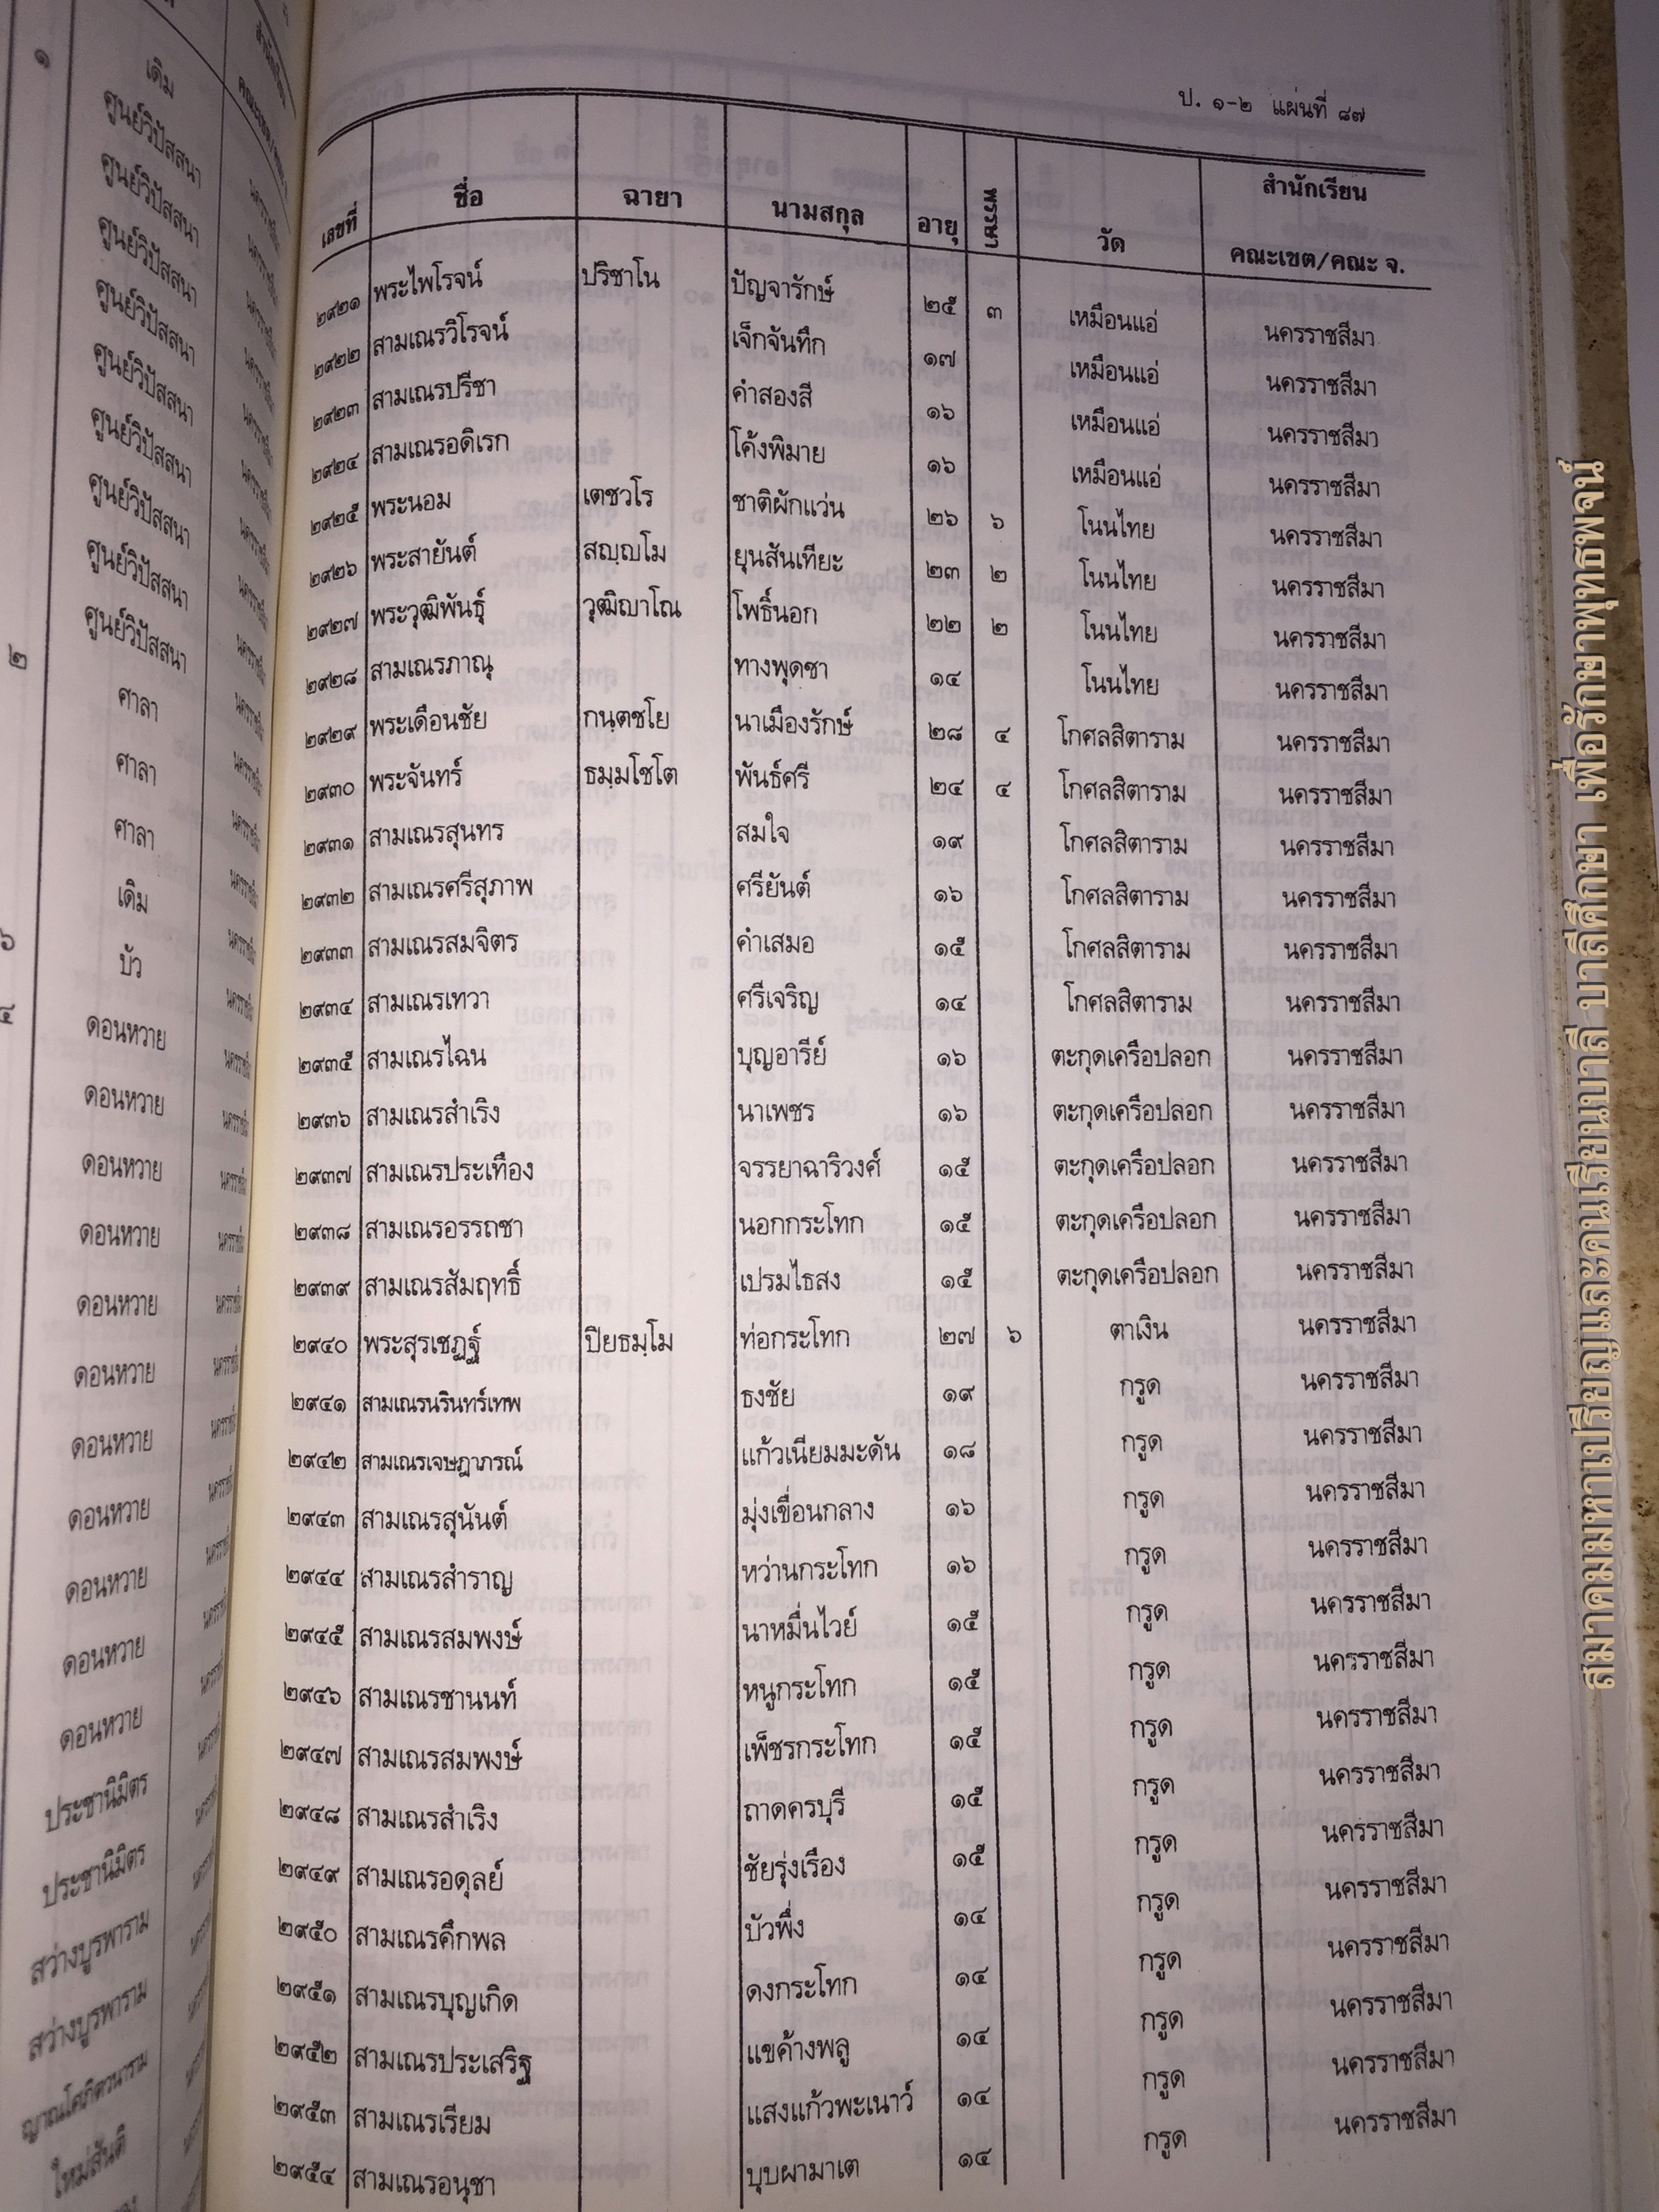 ป. ๑-๒ แผ่นที่ ๘๗
เลขที่ ชื่อ ฉายา นามสกุล อายุ พรรษา วัด สำนักเรียน คณะเขต/คณะ จ.
๒๙๒๑ พระไพโรจน์ ปริชาโน ปัญจารักษ์ ๒๕ ๓ เหมือนแอ่ นครราชสีมา
๒๙๒๒ สามเณรวิโรจน์ เจ็กจันทึก ๑๗ เหมือนแอ่ นครราชสีมา
๒๙๒๓ สามเณรปรีชา คำสองสี ๑๖ เหมือนแอ่ นครราชสีมา
๒๙๒๔ สามเณรอดิเรก โค้งพิมาย ๑๖ เหมือนแอ่ นครราชสีมา
๒๙๒๕ พระนอม เตชวโร ชาติผักแว่น ๒๖ ๖ โนนไทย นครราชสีมา
๒๙๒๖ พระสายันต์ สญฺญโม ยุนสันเทียะ ๒๓ ๒ โนนไทย นครราชสีมา
๒๙๒๗ พระวุฒิพันธุ์ วุฒิญาโณ โพธิ์นอก ๒๒ ๒ โนนไทย นครราชสีมา
๒๙๒๘ สามเณรภาณุ ทางพุดซา ๑๔ โนนไทย นครราชสีมา
๒๙๒๙ พระเดือนชัย กนฺตชโย นาเมืองรักษ์ ๒๘ ๔ โกศลสิตาราม นครราชสีมา
๒๙๓๐ พระจันทร์ ธมฺมโชโต พันธ์ศรี ๒๔ ๔ โกศลสิตาราม นครราชสีมา
๒๙๓๑ สามเณรสุนทร สมใจ ๑๙ โกศลสิตาราม นครราชสีมา
๒๙๓๒ สามเณรศรีสุภาพ ศรียันต์ ๑๖ โกศลสิตาราม นครราชสีมา
๒๙๓๓ สามเณรสมจิตร คำเสมอ ๑๕ โกศลสิตาราม นครราชสีมา
๒๙๓๔ สามเณรเทวา ศรีเจริญ ๑๔ โกศลสิตาราม นครราชสีมา
๒๙๓๕ สามเณรไฉน บุญอารีย์ ๑๖ ตะกุดเครือปลอก นครราชสีมา
๒๙๓๖ สามเณรสำเริง นาเพชร ๑๖ ตะกุดเครือปลอก นครราชสีมา
๒๙๓๗ สามเณรประเทือง จรรยาฉาริวงศ์ ๑๕ ตะกุดเครือปลอก นครราชสีมา
๒๙๓๘ สามเณรอรรถชา นอกกระโทก ๑๕ ตะกุดเครือปลอก นครราชสีมา
๒๙๓๙ สามเณรสัมฤทธิ์ เปรมไธสง ๑๕ ตะกุดเครือปลอก นครราชสีมา
๒๙๔๐ พระสุรเชฏฐ์ ปิยธมฺโม ท่อกระโทก ๒๗ ๖ ตาเงิน นครราชสีมา
๒๙๔๑ สามเณรนรินทร์เทพ ธงชัย ๑๙ กรูด นครราชสีมา
๒๙๔๒ สามเณรเจษฎาภรณ์ แก้วเนียมมะดัน ๑๘ กรูด นครราชสีมา
๒๙๔๓ สามเณรสุนันต์ มุ่งเขื่อนกลาง ๑๖ กรูด นครราชสีมา
๒๙๔๔ สามเณรสำราญ หว่านกระโทก ๑๖ กรูด นครราชสีมา
๒๙๔๕ สามเณรสมพงษ์ นาหมื่นไวย์ ๑๕ กรูด นครราชสีมา
๒๙๔๖ สามเณรชานนท์ หนูกระโทก ๑๕ กรูด นครราชสีมา
๒๙๔๗ สามเณรสมพงษ์ เพ็ชรกระโทก ๑๕ กรูด นครราชสีมา
๒๙๔๘ สามเณรสำเริง ถาดครบุรี ๑๕ กรูด นครราชสีมา
๒๙๔๙ สามเณรอดุลย์ ชัยรุ่งเรือง ๑๕ กรูด นครราชสีมา
๒๙๕๐ สามเณรคึกพล บัวพึ่ง ๑๔ กรูด นครราชสีมา
๒๙๕๑ สามเณรบุญเกิด ดงกระโทก ๑๔ กรูด นครราชสีมา
๒๙๕๒ สามเณรประเสริฐ แขค้างพลู ๑๔ กรูด นครราชสีมา
๒๙๕๓ สามเณรเรียม แสงแก้วพะเนาว์ ๑๔ กรูด นครราชสีมา
๒๙๕๔ สามเณรอนุชา บุบผามาเต ๑๔ กรูด นครราชสีมา
๑ เดิม
ศูนย์วิปัสสนา นครราชสีมา
ศูนย์วิปัสสนา นครราชสีมา
ศูนย์วิปัสสนา นครราชสีมา
ศูนย์วิปัสสนา นครราชสีมา
ศูนย์วิปัสสนา นครราชสีมา
ศูนย์วิปัสสนา นครราชสีมา
ศูนย์วิปัสสนา นครราชสีมา
ศูนย์วิปัสสนา นครราชสีมา
๒ ศูนย์วิปัสสนา นครราชสีมา
ศาลา นครราชสีมา
ศาลา นครราชสีมา
ศาลา นครราชสีมา
เดิม นครราชสีมา
๖ บัว นครราชสีมา
๔ ดอนหวาย นครราชสีมา
ดอนหวาย นครราชสีมา
ดอนหวาย นครราชสีมา
ดอนหวาย นครราชสีมา
ดอนหวาย
ดอนหวาย
ดอนหวาย
ดอนหวาย
ดอนหวาย
ดอนหวาย
ดอนหวาย
ประชานิมิตร
ประชานิมิตร
สว่างบูรพาราม
สว่างบูรพาราม
ใหม่สันติ
สมาคมมหาเปรียญและคนเรียนบาลี บาลีศึกษา เพื่อรักษาพุทธพจน์